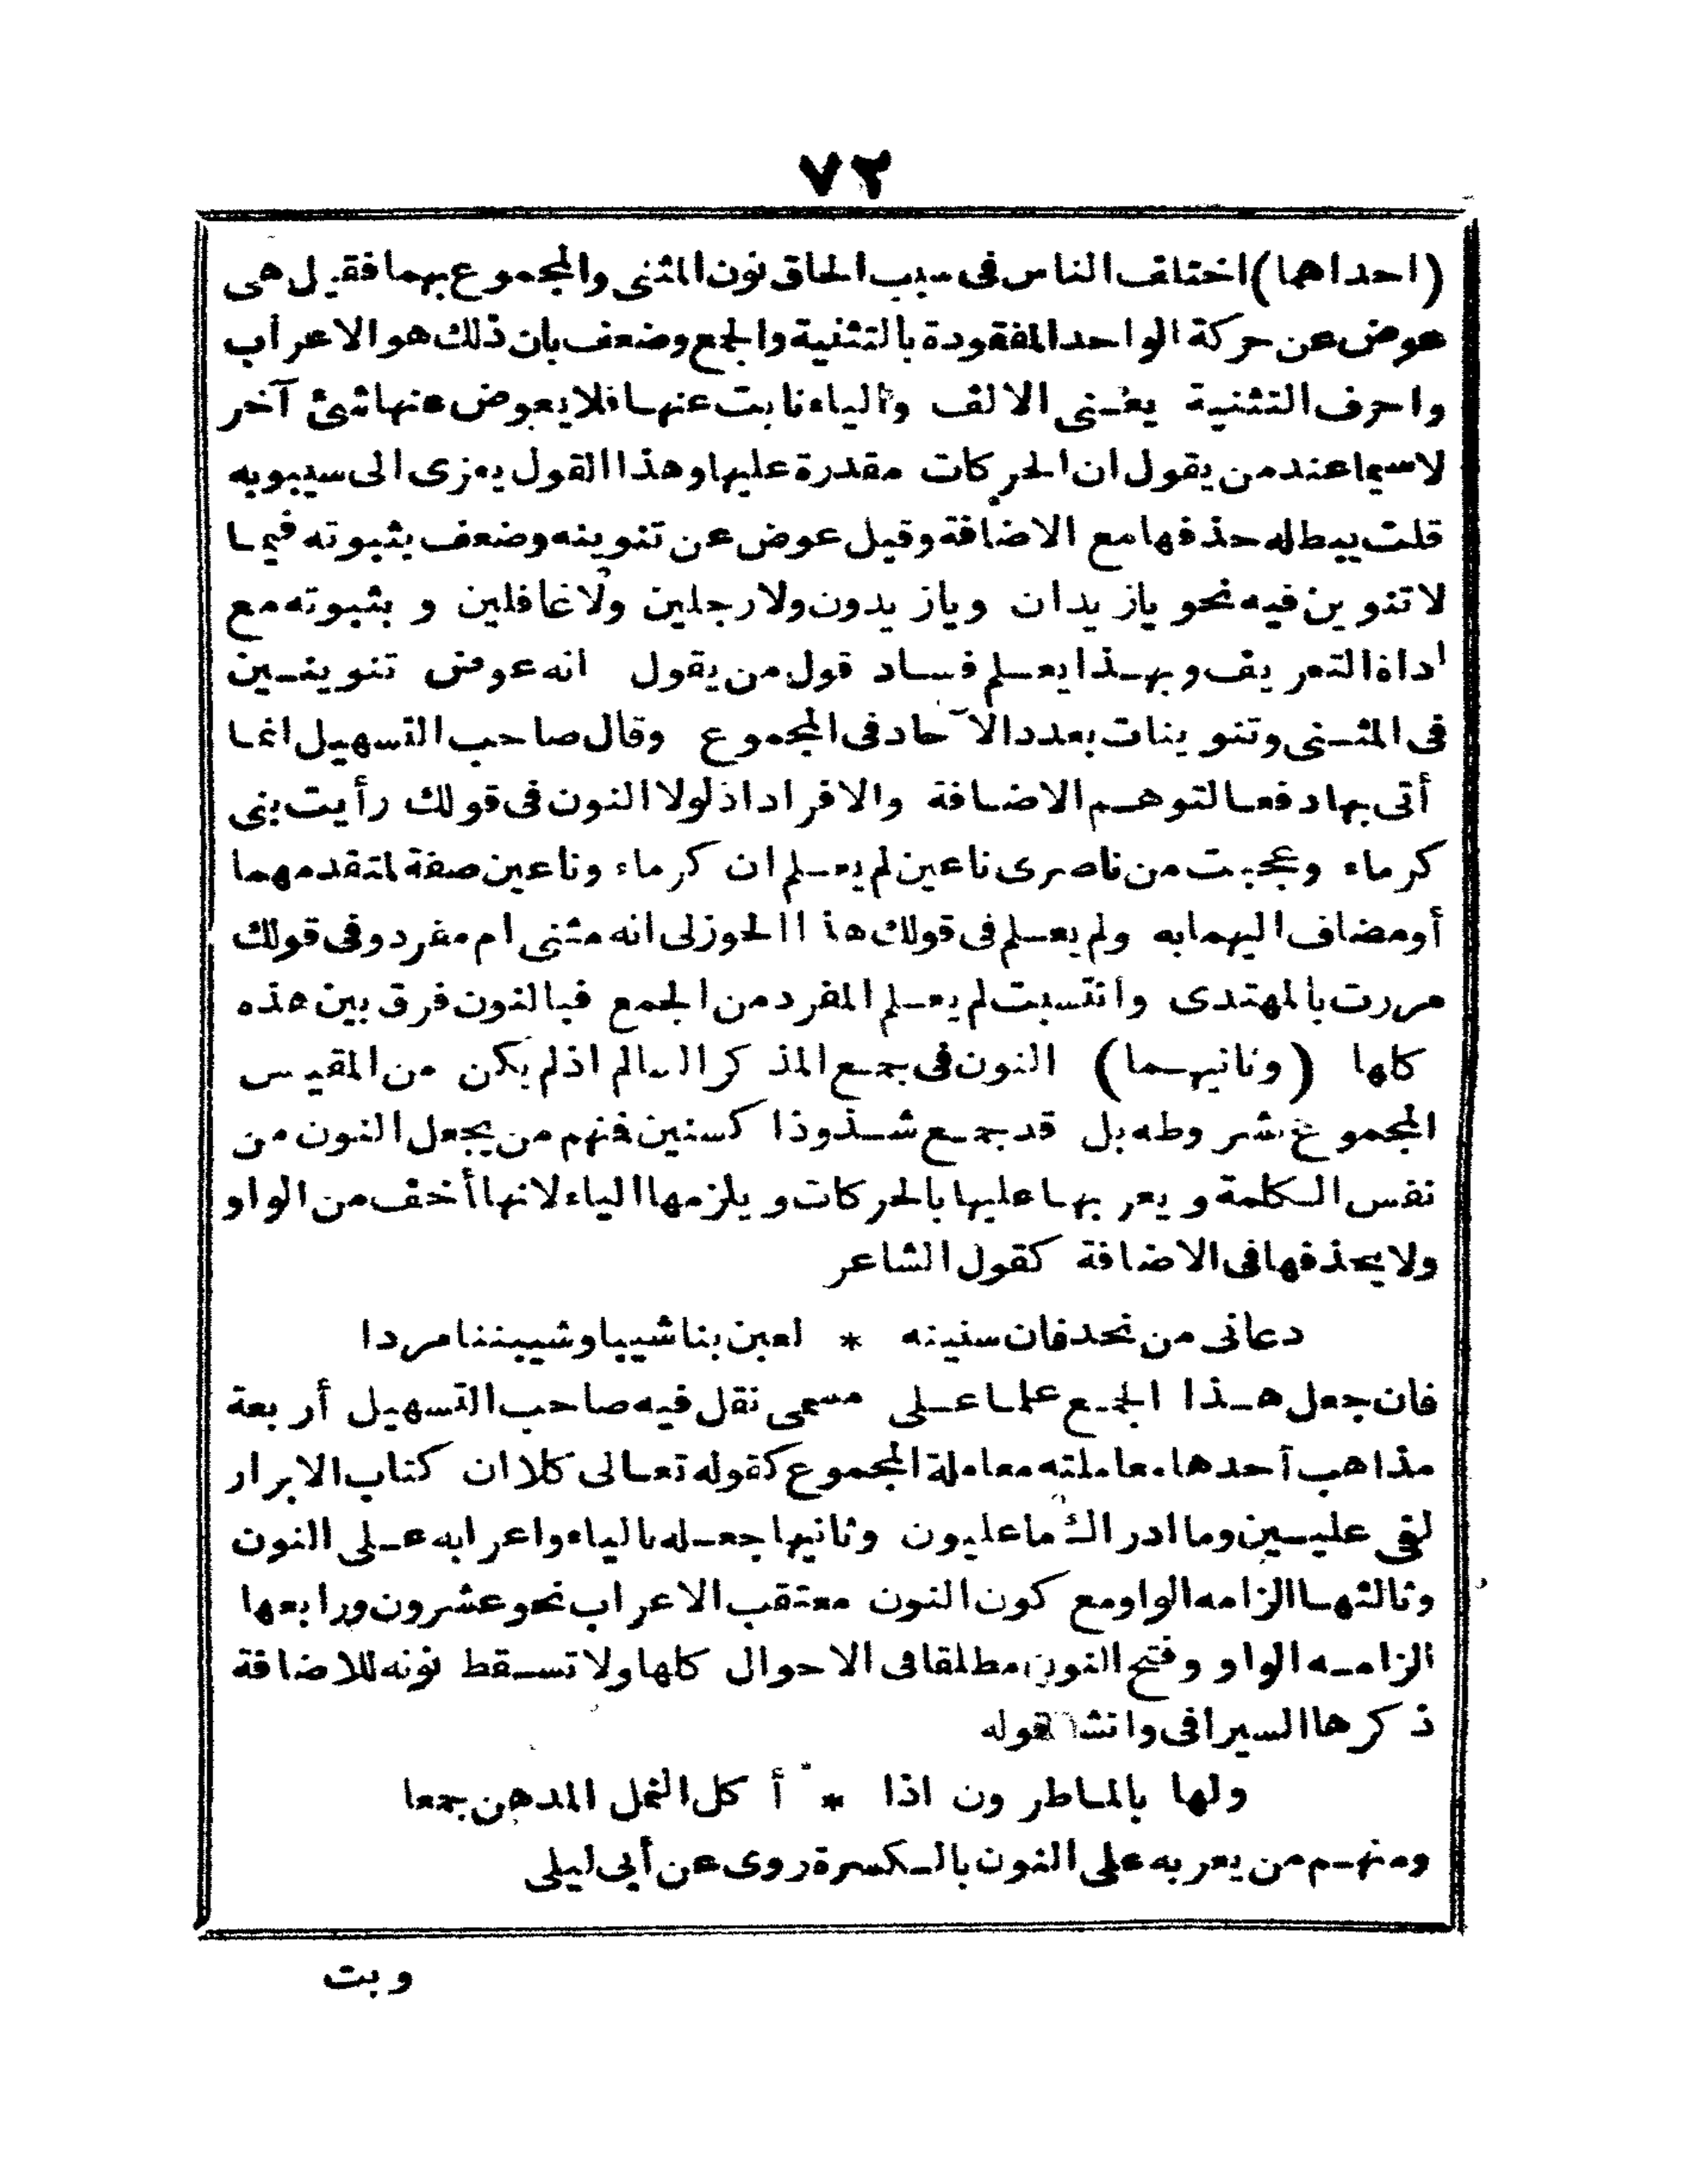 ٧٢
(احداهما) اختلف الناس فى سبب الحاق نون المثنى والمجموع بهما فقيل هى
عوض عن حركة الواحد المفقودة بالتثنية والجمع وضعف بان ذلك هو الاعراب
واحرف التثنية يعنى الالف والياء نابت عنها فلا يعوض عنها شئ آخر
لاسيما عند من يقول ان الحركات مقدرة عليها وهذا القول يعزى الى سيبويه
قلت يبطله حذفها مع الاضافة وقيل عوض عن تنوينه وضعف بثبوته فيما
لا تنوين فيه نحو يازيدان ويازيدون ولارجلين ولاغافلين وبثبوته مع
اداة التعريف وبهذا يعلم فساد قول من يقول انه عوض تنوينين
فى المثنى وتنوينات بعدد الآحاد فى المجموع وقال صاحب التسهيل انما
أتى بها دفعا لتوهم الاضافة والافراد اذ لولا النون فى قولك رأيت بنى
كرماء وعجبت من ناصرى ناعين لم يعلم ان كرماء وناعين صفة لمتقدمهما
أو مضاف اليهما به ولم يعلم فى قولك هذا الخوزلى انه مثنى ام مفرد وفى قولك
مررت بالمهتدى وانتسبت لم يعلم المفرد من الجمع فبالنون فرق بين هذه
كلها (وثانيهما) النون فى جمع المذكر السالم اذ لم يكن من المقيس
المجموع بشروطه بل قد جمع شذوذا كسنين فمنهم من يجعل النون من
نفس الكلمة ويعربها عليها بالحركات ويلزمها الياء لانها أخف من الواو
ولا يحذفها فى الاضافة كقول الشاعر
دعانى من نجد فان سنينه * لعبن بنا شيبا وشيبننا مردا
فان جعل هذا الجمع علما على مسمى نقل فيه صاحب التسهيل أربعة
مذاهب أحدها معاملته معاملة المجموع كقوله تعالى كلا ان كتاب الابرار
لفى عليين وما ادراك ما عليون وثانيها جعله بالياء واعرابه على النون
وثالثها الزامه الواو مع كون النون معتقب الاعراب نحو عشرون ورابعها
الزامه الواو وفتح النون مطلقا فى الاحوال كلها ولا تسقط نونه للاضافة
ذكرها السيرافى وانشد قوله
ولها بالماطرون اذا * أكل النمل المدهن جمعا
ومنهم من يعربه على النون بالكسرة روى عن أبى ليلى
وبت